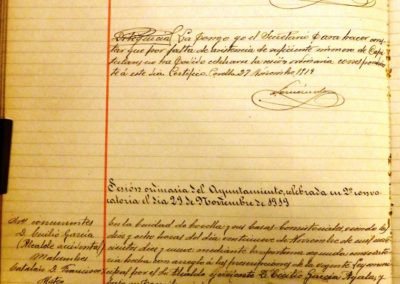 Diligencia La pongo yo el Secretario para hacer cons-
tar que por falta de asistencia de suficiente número de Capi-
tulares, no ha podido celebrarse la sesión ordinaria correspondien-
te á este día. Certifico. Corella 27 Noviembre 1919
Sesión ordinaria del Ayuntamiento, celebrada en 2ª convo-
catoria el día 29 de Noviembre de 1919
Sres concurrentes
D. Cecilio García
(Alcalde accidental)
Catalán D. Francisco
En la Ciudad de Corella y sus Casas Consistoriales, siendo las
diez y ocho horas del día veintinueve de Noviembre de mil nove-
cientos diez y nueve, mediante la oportuna segunda convocatoria
hecha con arreglo á las prescripciones de la vigente Ley muni-
cipal por el Sr Alcalde D. Cecilio García Ayala, y